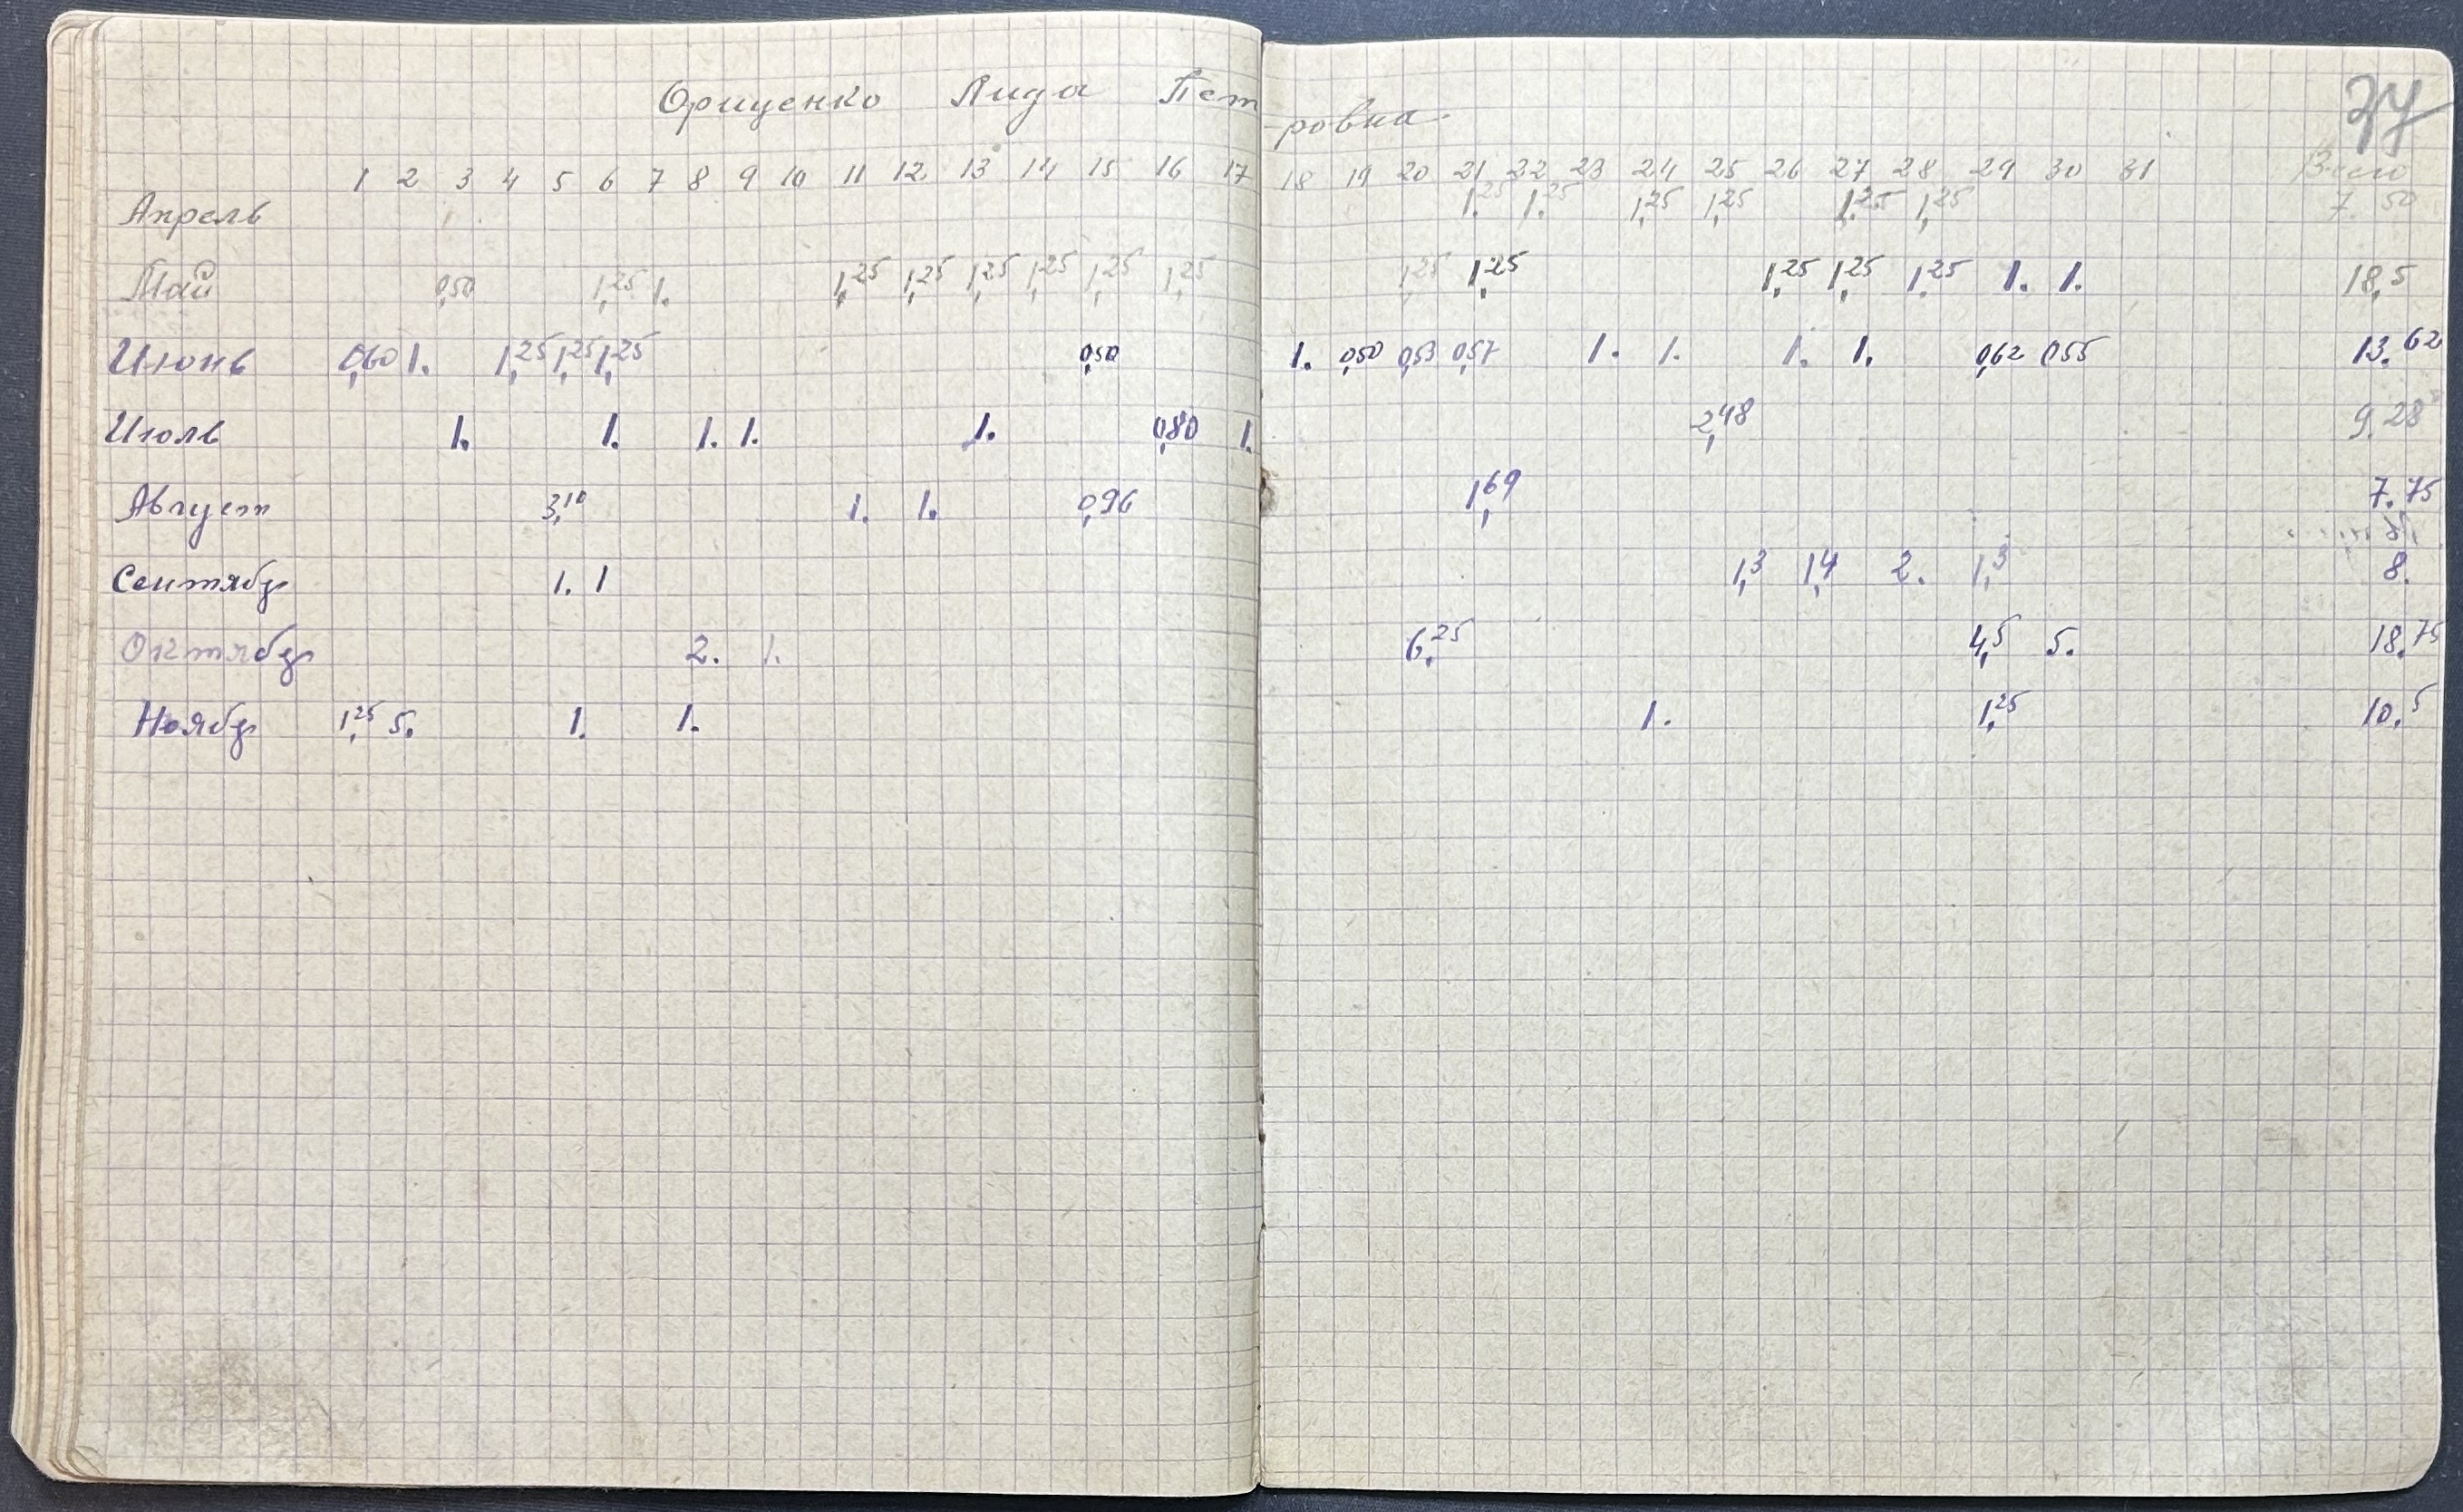 Орищенко Лида Петровна
37
1 2 3 4 5 6 7 8 9 10 11 12 13 14 15 16 17 18 19 20 21 22 23 24 25 26 27 28 29 30 31 Всего
Апрель 1,25 1,25 1,25 1,25 1,25 1,25 7.50
Май 0,50 1,25 1. 1,25 1,25 1,25 1,25 1,25 1,25 1,25 1,25 1,25 1,25 1,25 1. 1. 18,5
Июнь 0,60 1. 1,25 1,25 1,25 0,50 1. 0,50 0,53 0,57 1. 1. 1. 1. 0,62 0,55 13.62
Июль 1. 1. 1. 1. 1. 0,80 1. 2,48 9.28
Август 3,10 1. 1. 0,96 1,69 7.75
Сентябр 1. 1 1,3 1,4 2. 1,3 8.
Октябр 2. 1. 6,25 4,5 5. 18.75
Ноябр 1,25 5. 1. 1. 1. 1,25 10.5